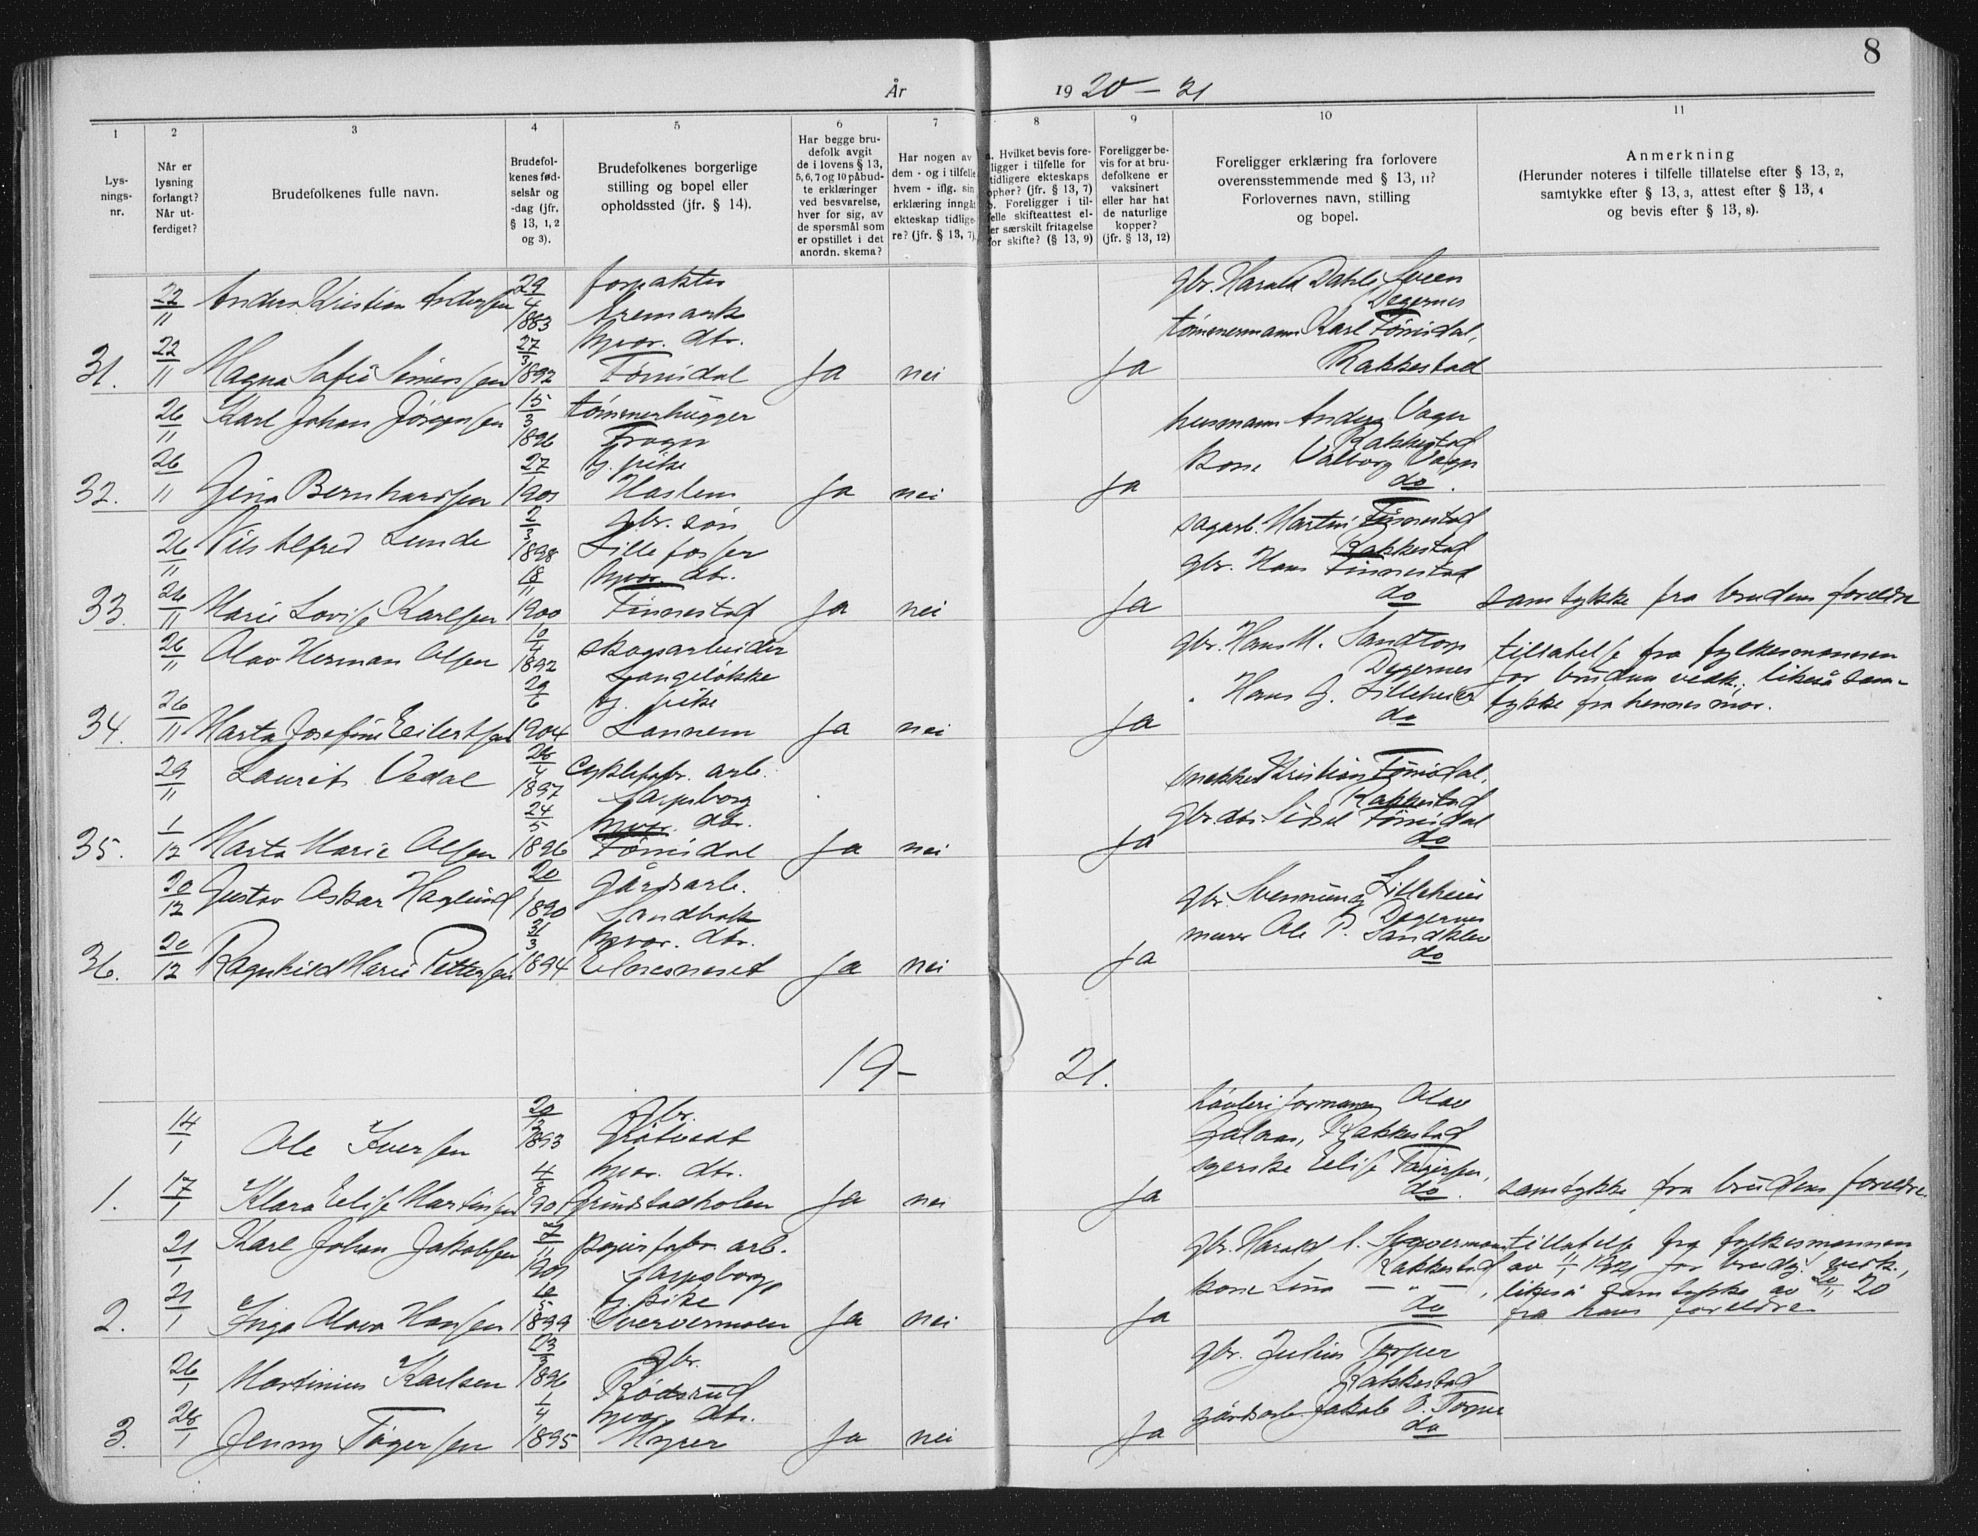 8
År 1920 - 21
1 2 3 4 5 6 7 8 9 10 11
Lys-
nings-
nr.
Når er
lysning
forlangt?
Når ut-
ferdiget?
Brudefolkenes fulle navn.
Brudefol-
kenes fød-
selsår og
-dag (jfr.
§ 13, 1, 2
og 3).
Brudefolkenes borgerlige
stilling og bopel eller
opholdssted (jfr. § 14).
Har begge bru-
defolk avgit
de i lovens § 13,
5, 6, 7 og 10 påbud-
te erklæringer
ved besvarelse,
hver for sig, av
de spørsmål som
er opstillet i det
anordn. skema?
Har nogen av
dem - og i tilfelle
hvem - iflg. sin
erklæring inngåt
ekteskap tidlige-
re? (jfr. § 13, 7)
a. Hvilket bevis fore-
ligger i tilfelle for
tidligere ekteskaps
ophør? (jfr. § 13, 7)
b. Foreligger i til-
felle skifteattest el-
er særskilt fritagelse
for skifte? (§ 13, 9)
Foreligger be-
vis for at bru-
defolkene er
vaksinert
eller har hat
de naturlige
kopper?
(jfr. § 13, 12)
Foreligger erklæring fra forlovere
overensstemmende med § 13, 11?
Forlovernes navn, stilling
og bopel.
Anmerkning
(Herunder noteres i tilfelle tillatelse efter § 13, 2,
samtykke efter § 13, 3, attest efter § 13, 4
og bevis efter § 13, 8).
22/11 Anders Kristian Andersen 29/4 1883 forpakter Aremark gbr. Harald Dahls Sveen Degernes
31. 22/11 Magna Sofie Simensen 27/3 1892 hjvær. dtr. Fönisdal Ja nei Ja tömmermann Karl Fönisdal, Rakkestad
26/11 Karl Johan Jörgensen 15/3 1896 tömmerhugger Frogn husmann Anders Vager Rakkestad
32. 26/11 Gina Bernhardsen 27/ 1901 tj. pike Haslem Ja nei Ja kone Valborg Vager do.
26/11 Nils Alfred Lunde 2/3 1898 gbr. søn Lillefosser sagarb. Martin Finnestad Rakkestad
33. 26/11 Marie Lovise Karlsen 18/11 1900 hjvær. dtr. Finnestad Ja nei Ja gbr. Hans Finnestad do samtykke fra brudens foreldre
26/11 Olav Herman Olsen 10/4 1892 skogsarbeider Langeløkke gbr. Hans M. Sandtorp Degernes tillatelse fra fylkesmannen
34. 26/11 Marta Josefine Eilertsen 29/6 1904 tj. pike Lannem Ja nei Ja " Hans G. Lilleheie do for brudens vedk.; likeså sam-
tykke fra hennes mor.
29/11 Laurits Vedal 1897 cyklefabr. arb. Sarpsborg snekker Kristian Fönisdal, Rakkestad
35. 1/12 Marta Marie Olsen 24/5 1896 hjvær. dtr. Fönisdal Ja nei Ja gbr. dtr. Sidsel Fönisdal do
20/12 Gustav Oskar Haglund 20/1 1890 gårdsarb. Sandbak gbr. Svennung Lilleheie Degernes
36. 20/12 Ragnhild Marie Pettersen 31/3 1894 hjvær. dtr. Elnesneset Ja nei Ja murer Ole P. Sandklev do
19- 21.
14/1 Ole Iversen 20/12 1893 Gbr. Grötvedt høvleriformann Olav Rakkestad
1. 17/1 Klara Elise Martinsen 4/ 1901 hjvær. dtr. Grimstadholen Ja nei Ja syerske Elise do. samtykke fra brudens foreldre.
21/1 Karl Johan Jakobsen 7/11 1901 papirfabr. arb. Sarpsborg gbr. Harald Svervemoen Rakkestad tillatelse fra fylkesmannen
av 11/1 1921 for brudg. vedk.,
2. 21/1 Inga Olava Hansen /5 1899 tj. pike Svervemoen Ja nei Ja kone Lina - " - do likeså samtykke av 20/11 20
fra hans foreldre
26/1 Martinius Karlsen 23/3 1896 Gbr. Rödsrud gbr. Julius Torper Rakkestad
3. 28/1 Jenny Tögersen 1/4 1895 hjvær. dtr. Myrer Ja nei Ja gårdsarb. Jakob Torper do